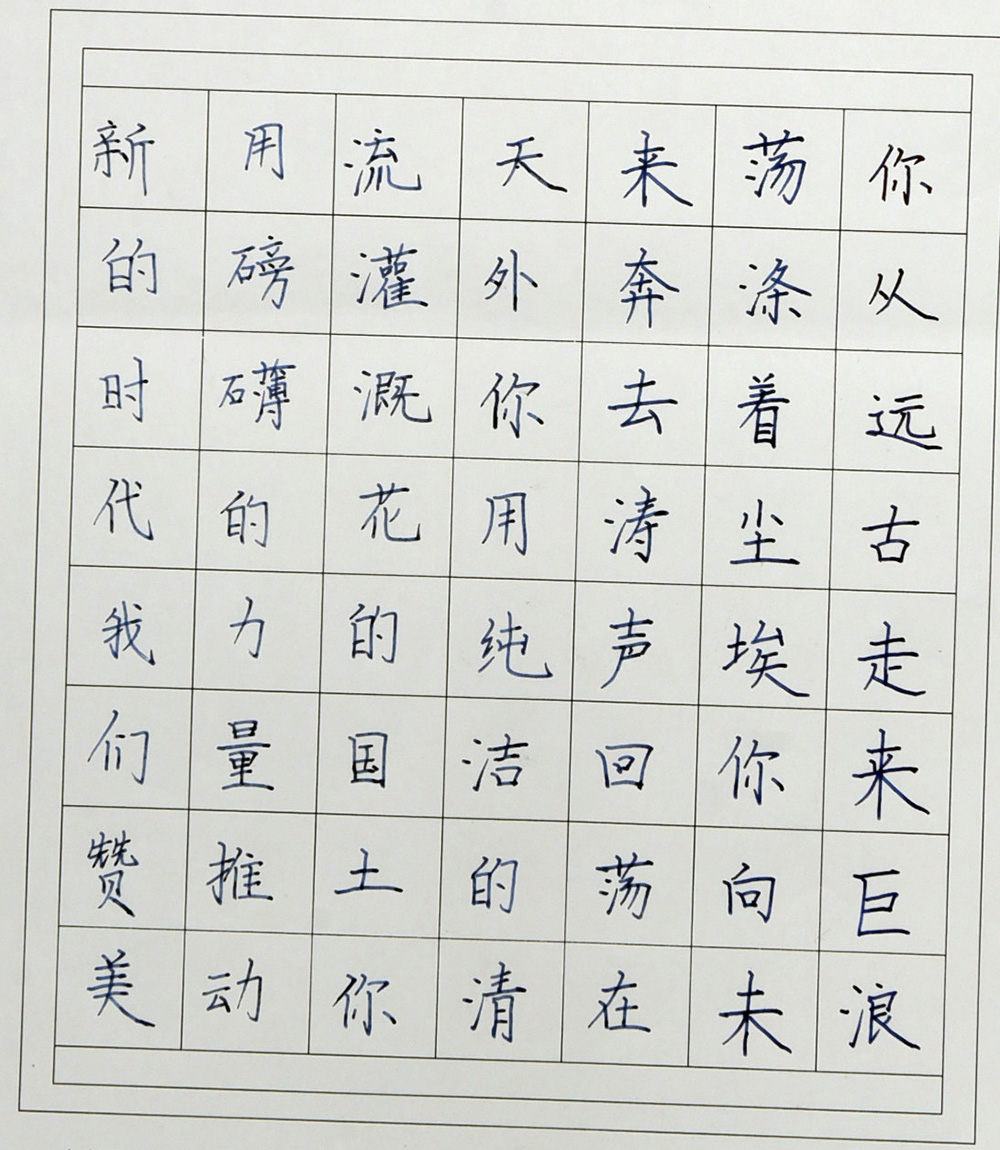 你从远古走来巨浪
荡涤着尘埃你向未
来奔去涛声回荡在
天外你用纯洁的清
流灌溉花的国土你
用磅礴的力量推动
新的时代我们赞美